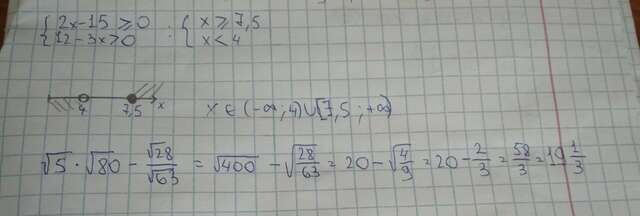 { 2x-15 ⩾ 0 ; { x ⩾ 7,5
{ 12-3x > 0 { x < 4
4 7,5 x x ∈ (-∞; 4)∪[7,5; +∞)
√5 · √80 - √28/√63 = √400 - √(28/63) = 20 - √(4/9) = 20 - 2/3 = 58/3 = 19 1/3